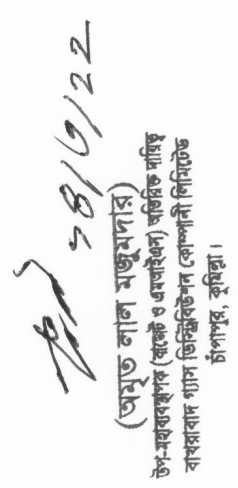 ১৪/৬/22
(অমৃত লাল মজুমদার)
উপ-মহাব্যবস্থাপক (মার্কেট ও এমআইএস) অতিরিক্ত দায়িত্ব
বাখরাবাদ গ্যাস ডিস্ট্রিবিউশন কোম্পানী লিমিটেড
চাঁপাপুর, কুমিল্লা।